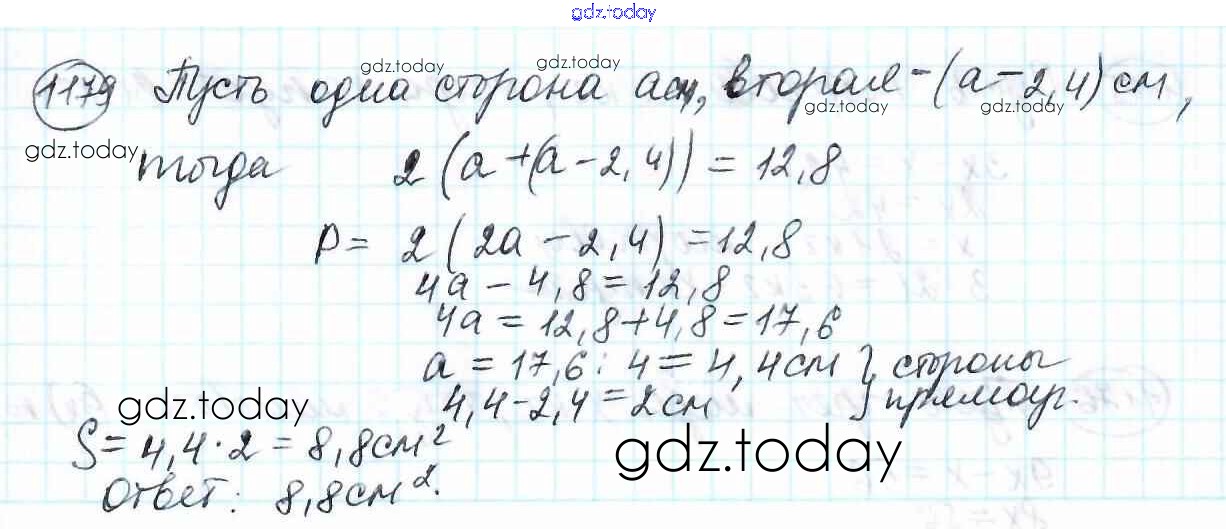 gdz.today
1179 Пусть одна сторона а см, вторая - (а - 2,4) см,
gdz.today gdz.today gdz.today gdz.today
gdz.today
тогда 2(а + (а - 2,4)) = 12,8
P = 2(2а - 2,4) = 12,8
4а - 4,8 = 12,8
4а = 12,8 + 4,8 = 17,6
а = 17,6 : 4 = 4,4 см } стороны
4,4 - 2,4 = 2 см } прямоуг.
gdz.today
S = 4,4 · 2 = 8,8 см²
gdz.today
Ответ: 8,8 см².